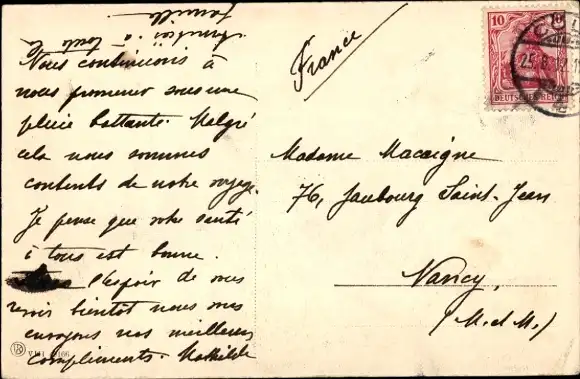 Nous continuons à
nous promener sous une
pluie battante. Malgré
cela nous sommes
contents de notre voyage.
Je pense que votre santé
à tous est bonne.
l'espoir de vous
revoir bientôt nous vous
envoyons nos meilleurs
compliments. Mathilde
à toute la
famille
France
10 10
DEUTSCHES REICH
25.8.12
Madame Macaigne
76, Faubourg Saint-Jean
Nancy.
(M. et M.)